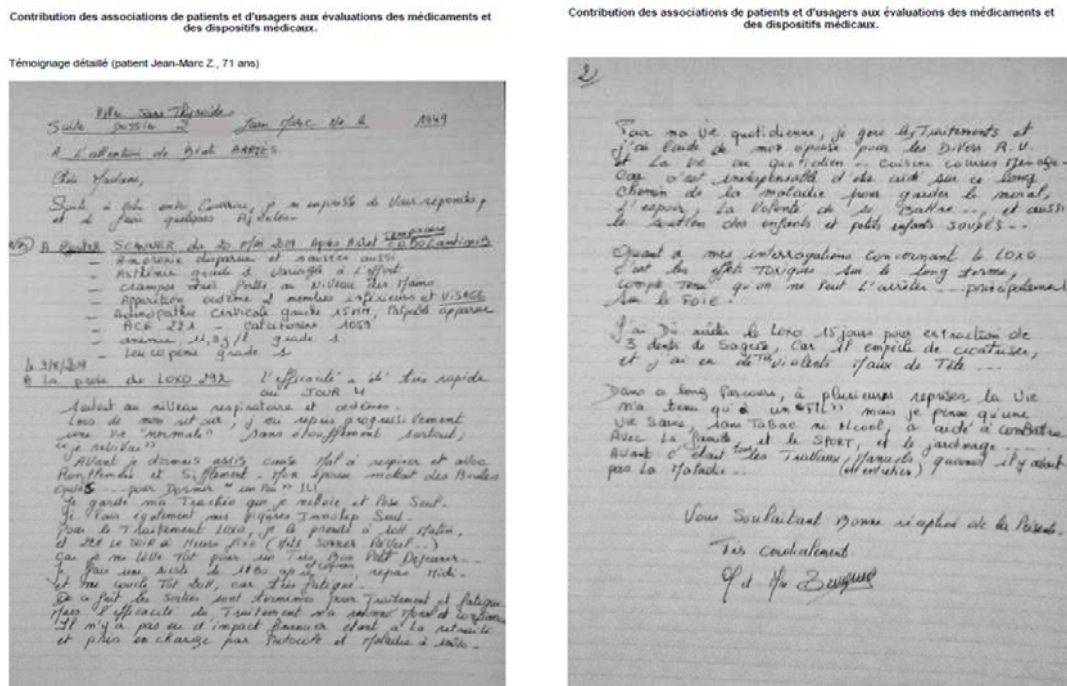 Contribution des associations de patients et d'usagers aux évaluations des médicaments et
des dispositifs médicaux.
Témoignage détaillé (patient Jean-Marc Z., 71 ans)
Vivre sans Thyroïde
Suite Dossier 2 Jean Marc Né le 1949
A L'attention de Beate BARTÈS
Chère Madame,
Suite à votre Courrier, je m'empresse de Vous répondre,
et de faire quelques
SCANNER du 20 Mai 2019 Après Arrêt Temporaire CABOZantinib
- Anorexie disparue et nausées aussi
- Asthénie grade 1 Variable à l'effort
- Crampes mais au Niveau des Mains
- Apparition oedème 2 membres inférieurs et VISAGE
- Adénopathie Cervicale gauche 15 MM, Palpable
- ACE 221 - calcitonine 1059
- anémie 11,3 g/l grade 1
- Leucopénie grade 1
A La prise du LOXO 292 l'efficacité a été très rapide
au JOUR 4
Surtout au niveau respiratoire et oedèmes.
Lors de mon retour, j'ai repris progressivement
une Vie "normale" sans étouffement surtout,
"je revivais"
Avant je dormais assis cause Mal à respirer et avec
Ronflements et Sifflement. Mon épouse mettait des Boules
Quies ... pour Dormir "un Peu" !!!
Je garde ma Trachéo que je nettoie et Pose Seul.
Je Fais également mes piqûres Seul.
Pour le Traitement LOXO, je le prends à 10H Matin,
et 22H Le SOIR à Heure fixe (
Car je me lève Tôt pour un Très Bon Petit Déjeuner..
Je fais une sieste de 1H30 après repas Midi.
et me couche Tôt 20H, car très fatigué.
De ce fait les sorties sont terminées pour Traitement et fatigue.
Mais l'efficacité du Traitement m'a redonné Moral et confiance
Il n'y a pas eu d'impact financier étant à la retraite
et pris en charge par Protocole et Maladie à 100%.
Contribution des associations de patients et d'usagers aux évaluations des médicaments et
des dispositifs médicaux.
2)
Pour ma Vie quotidienne, je gère les Traitements et
j'ai l'aide de mon épouse pour les Divers R.V.
et La Vie au quotidien -- cuisine courses Ménage -
Car c'est indispensable d'être aidé sur ce long
chemin de la maladie pour garder le moral,
L'espoir, La Volonté de se Battre --, et aussi
le soutien des enfants et petits enfants SOUDÉS --
Quant à mes interrogations concernant le LOXO
c'est les effets Toxiques sur le long terme,
compte Tenu qu'on ne Peut L'arrêter --- principalement
sur le FOIE.
J'ai Dû arrêter le Loxo 15 jours pour extraction de
3 dents de Sagesse, Car il empêche de cicatriser,
et j'ai eu de Très violents Maux de Tête ---
Dans ce long Parcours, à plusieurs reprises La Vie
n'a tenu qu'à un "FIL" mais je pense qu'une
Vie Saine, sans Tabac ni Alcool, a aidé à combattre
Avec La famille, et le SPORT, et le jardinage ----
Avant c'était tous les Travaux Manuels quand il y avait
pas La Maladie --
Vous Souhaitant Bonne réception de la Présente.
Très cordialement